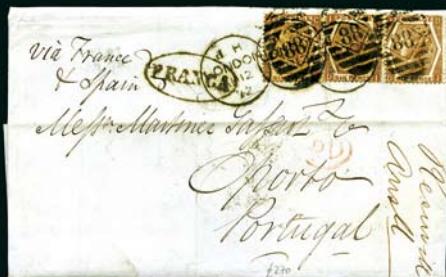 via France
& Spain
FRANCA
LONDON
12
72
88
88
88
Messrs Martinez Gassiot & Co
PD
Oporto
Portugal
£270